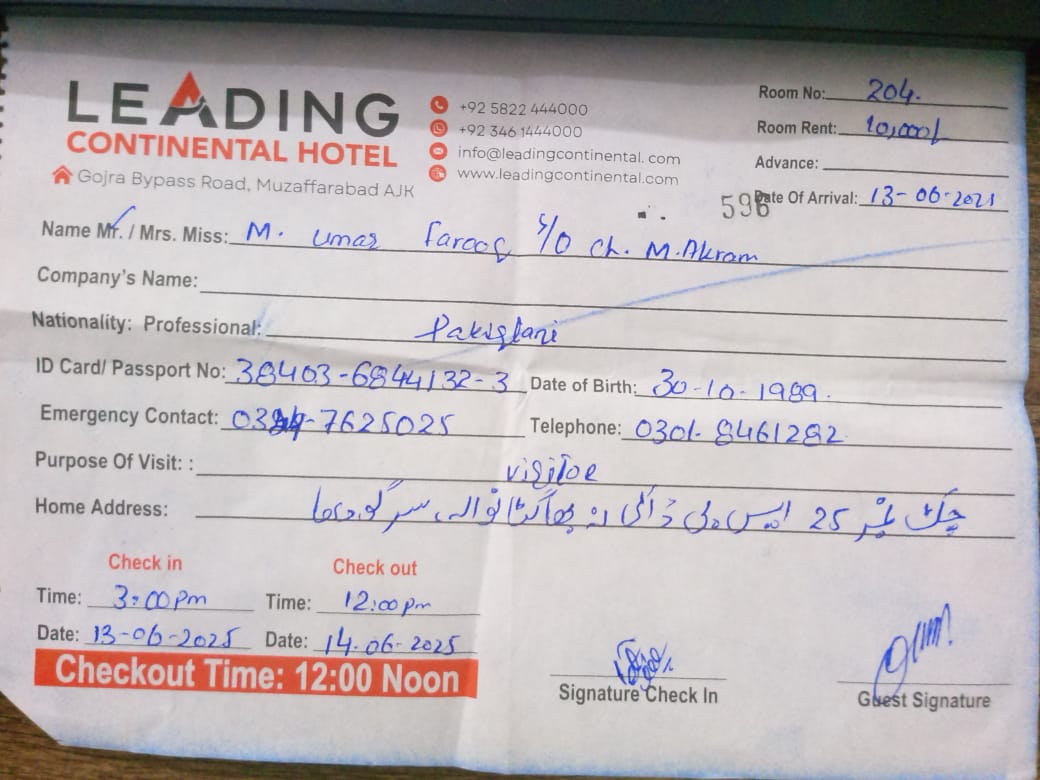 LEADING
CONTINENTAL HOTEL
Gojra Bypass Road, Muzaffarabad AJK
+92 5822 444000
+92 346 1444000
info@leadingcontinental. com
www.leadingcontinental.com
Room No: 204.
Room Rent: 10,000/
Advance:
596 Date Of Arrival: 13-06-2021
Name Mr. / Mrs. Miss: M. Umar Farooq S/O Ch. M.Akram
Company's Name:
Nationality: Professional: Pakistani
ID Card/ Passport No: 38403-6844132-3 Date of Birth: 30-10-1989.
Emergency Contact: 7625025 Telephone: 0301-8461282
Purpose Of Visit: : visitor
Home Address: چک نمبر 25 ایس بی سرگودھا
Check in Check out
Time: 3:00pm Time: 12:00pm
Date: 13-06-2025 Date: 14.06-2025
Checkout Time: 12:00 Noon
Signature Check In
Guest Signature